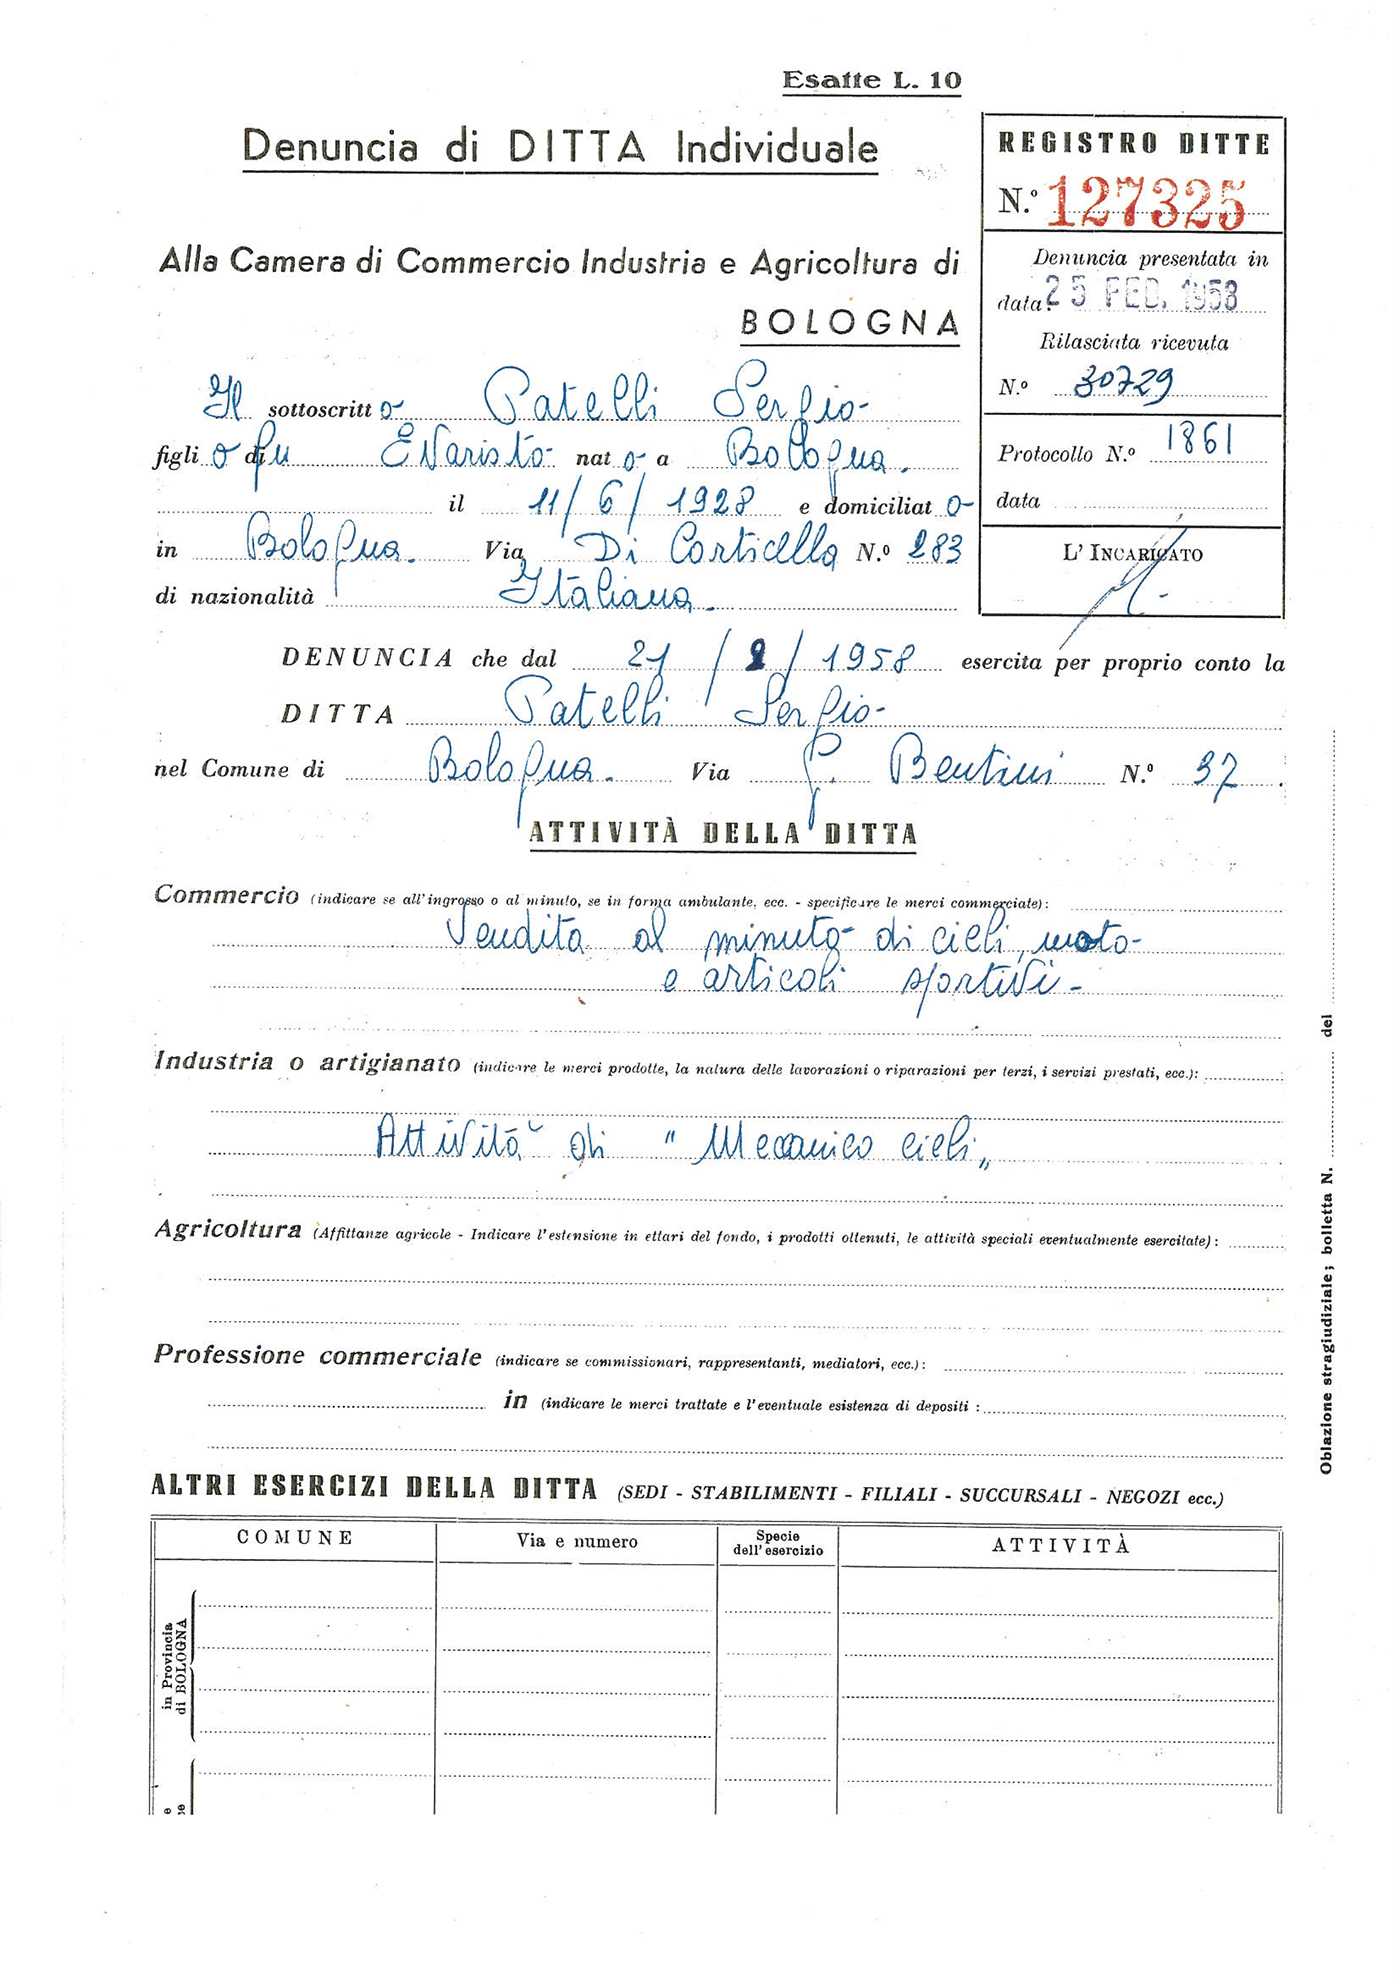 Esatte L. 10
Denuncia di DITTA Individuale
REGISTRO DITTE
N.º 127325
Alla Camera di Commercio Industria e Agricoltura di
BOLOGNA
Denuncia presentata in
data 25 FEB. 1958
Rilasciata ricevuta
N.º 30729
Protocollo N.º 1861
data
L'INCARICATO
Il sottoscritto Patelli Sergio
figlio di fu Evaristo nato a Bologna.
il 11/6/1928 e domiciliato
in Bologna. Via Di Corticella N.º 283
di nazionalità Italiana.
DENUNCIA che dal 21/2/1958 esercita per proprio conto la
DITTA Patelli Sergio
nel Comune di Bologna. Via G. Bentini N.º 37.
ATTIVITÀ DELLA DITTA
Commercio (indicare se all'ingrosso o al minuto, se in forma ambulante, ecc. - specificare le merci commerciate):
Vendita al minuto di cicli, moto
e articoli sportivi -
Industria o artigianato (indicare le merci prodotte, la natura delle lavorazioni o riparazioni per terzi, i servizi prestati, ecc.):
Attività di "Meccanico cicli„
Agricoltura (Affittanze agricole - Indicare l'estensione in ettari del fondo, i prodotti ottenuti, le attività speciali eventualmente esercitate):
Professione commerciale (indicare se commissionari, rappresentanti, mediatori, ecc.):
in (indicare le merci trattate e l'eventuale esistenza di depositi:
ALTRI ESERCIZI DELLA DITTA (SEDI - STABILIMENTI - FILIALI - SUCCURSALI - NEGOZI ecc.)
COMUNE Via e numero Specie dell'esercizio ATTIVITÀ
in Provincia
di BOLOGNA
Oblazione stragiudiziale; bolletta N. del